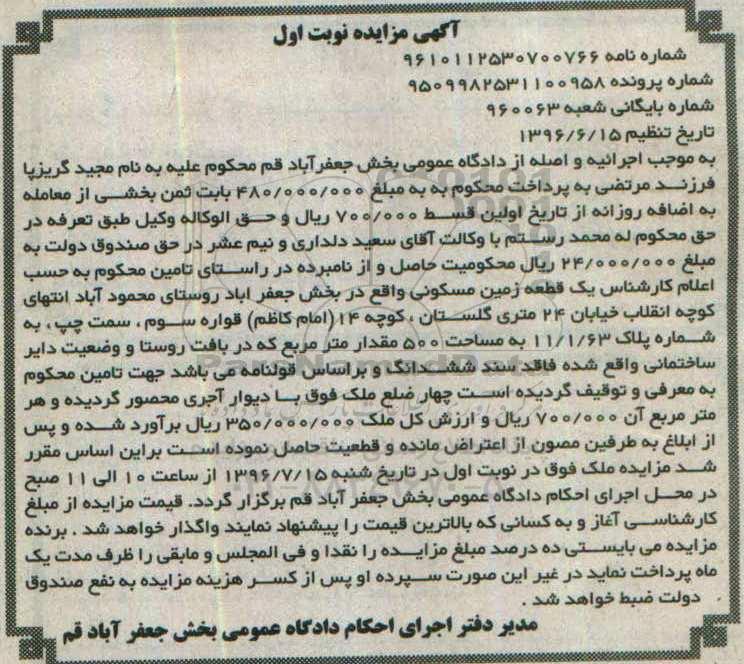 آگهی مزایده نوبت اول
شماره نامه ۹۶۱۰۱۱۲۵۳۰۷۰۰۷۶۶
شماره پرونده ۹۵۰۹۹۸۲۵۳۱۱۰۰۹۵۸
شماره بایگانی شعبه ۹۶۰۰۶۳
تاریخ تنظیم ۱۳۹۶/۶/۱۵
به موجب اجرائیه و اصله از دادگاه عمومی بخش جعفرآباد قم محکوم علیه به نام مجید گریزپا
فرزند مرتضی به پرداخت محکوم به به مبلغ ۴۸۰/۰۰۰/۰۰۰ بابت ثمن بخشی از معامله
به اضافه روزانه از تاریخ اولین قسط ۷۰۰/۰۰۰ ریال و حق الوکاله وکیل طبق تعرفه در
حق محکوم له محمد رستم با وکالت آقای سعید دلداری و نیم عشر در حق صندوق دولت به
مبلغ ۲۴/۰۰۰/۰۰۰ ریال محکومیت حاصل و از نامبرده در راستای تامین محکوم به حسب
اعلام کارشناس یک قطعه زمین مسکونی واقع در بخش جعفر اباد روستای محمود آباد انتهای
کوچه انقلاب خیابان ۲۴ متری گلستان ، کوچه ۱۴(امام کاظم) قواره سوم ، سمت چپ ، به
شماره پلاک ۱۱/۱/۶۳ به مساحت ۵۰۰ مقدار متر مربع که در بافت روستا و وضعیت دایر
ساختمانی واقع شده فاقد سند ششدانگ و براساس قولنامه می باشد جهت تامین محکوم
به معرفی و توقیف گردیده است چهار ضلع ملک فوق با دیوار آجری محصور گردیده و هر
متر مربع آن ۷۰۰/۰۰۰ ریال و ارزش کل ملک ۳۵۰/۰۰۰/۰۰۰ ریال برآورد شده و پس
از ابلاغ به طرفین مصون از اعتراض مانده و قطعیت حاصل نموده است براین اساس مقرر
شد مزایده ملک فوق در نوبت اول در تاریخ شنبه ۱۳۹۶/۷/۱۵ از ساعت ۱۰ الی ۱۱ صبح
در محل اجرای احکام دادگاه عمومی بخش جعفر آباد قم برگزار گردد. قیمت مزایده از مبلغ
کارشناسی آغاز و به کسانی که بالاترین قیمت را پیشنهاد نمایند واگذار خواهد شد . برنده
مزایده می بایستی ده درصد مبلغ مزایده را نقدا و فی المجلس و مابقی را ظرف مدت یک
ماه پرداخت نماید در غیر این صورت سپرده او پس از کسر هزینه مزایده به نفع صندوق
دولت ضبط خواهد شد .
مدیر دفتر اجرای احکام دادگاه عمومی بخش جعفر آباد قم